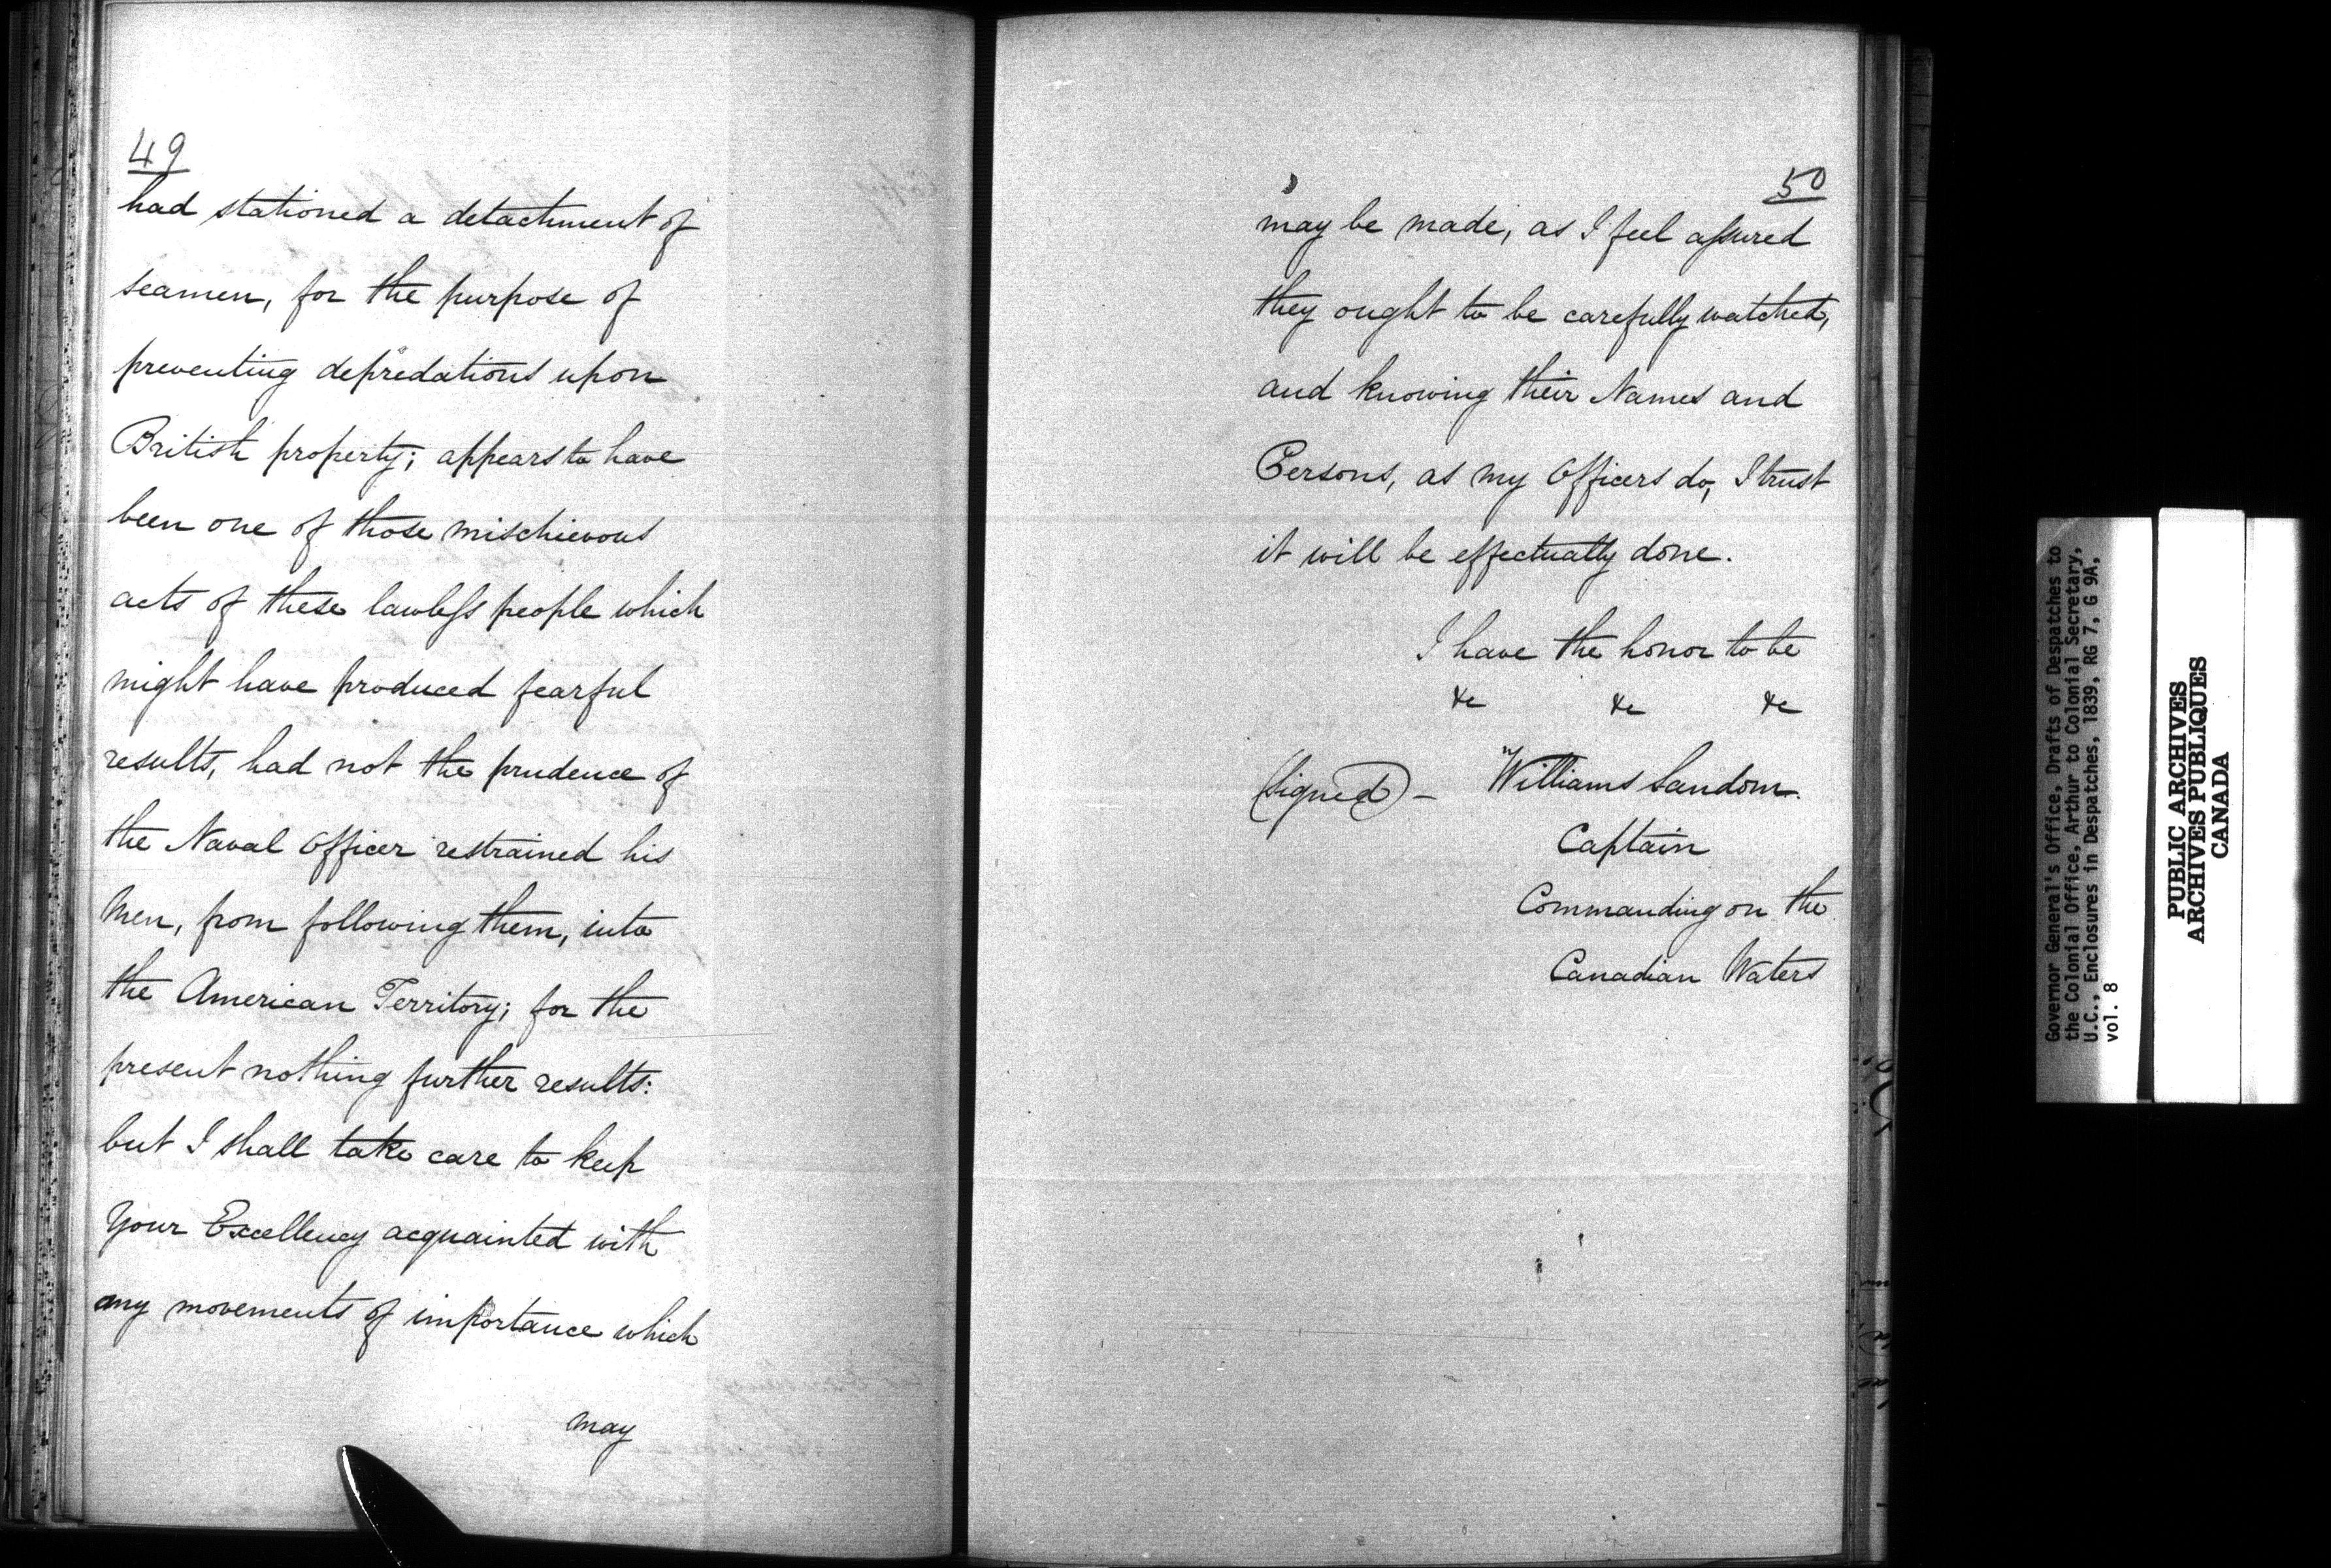 49
had stationed a detachment of
seamen, for the purpose of
preventing depredations upon
British property; appears to have
been one of those mischievous
acts of these lawless people which
might have produced fearful
results, had not the prudence of
the Naval Officer restrained his
Men, from following them, into
the American Territory; for the
present nothing further results:
but I shall take care to keep
Your Excellency acquainted with
any movements of importance which
may
50
may be made, as I feel assured
they ought to be carefully watched,
and knowing their Names and
Persons, as my Officers do, I trust
it will be effectually done.
I have the honor to be
&c &c &c
(signed) — "Williams Sandom.
Captain
Commanding on the
Canadian Waters
Governor General's Office, Drafts of Despatches to
the Colonial Office, Arthur to Colonial Secretary,
U.C., Enclosures in Despatches, 1839, RG 7, G 9A,
vol. 8
PUBLIC ARCHIVES
ARCHIVES PUBLIQUES
CANADA